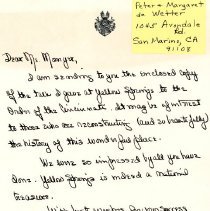 Peter & Margaret
de Wetter
1045 Avondale
Rd
San Marino, CA
91108
Dear Mr. Manyx,
I am sending to you the enclosed copy
of the talk I gave at Yellow Springs to the
Order of the Cincinnati. It may be of interest
to those who are reconstructing (and so beautifully)
the history of this wonderful place.
We were so impressed by all you have
done. Yellow Springs is indeed a national
treasure.
With best wishes